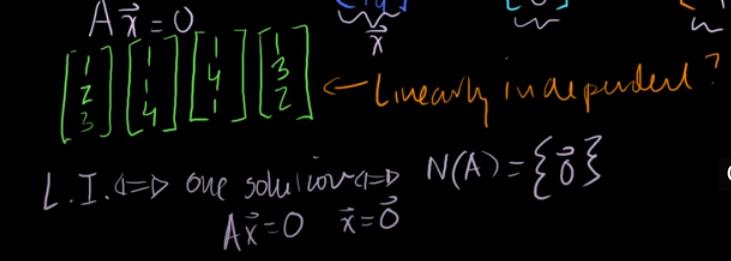 Ax⃗ = 0
x⃗
[1 2 3] [1 1 4] [1 4 1] [1 3 2] ← Linearly independent?
L.I. ⇔ one solution ⇔ N(A) = {0⃗}
Ax⃗ = 0 x⃗ = 0⃗